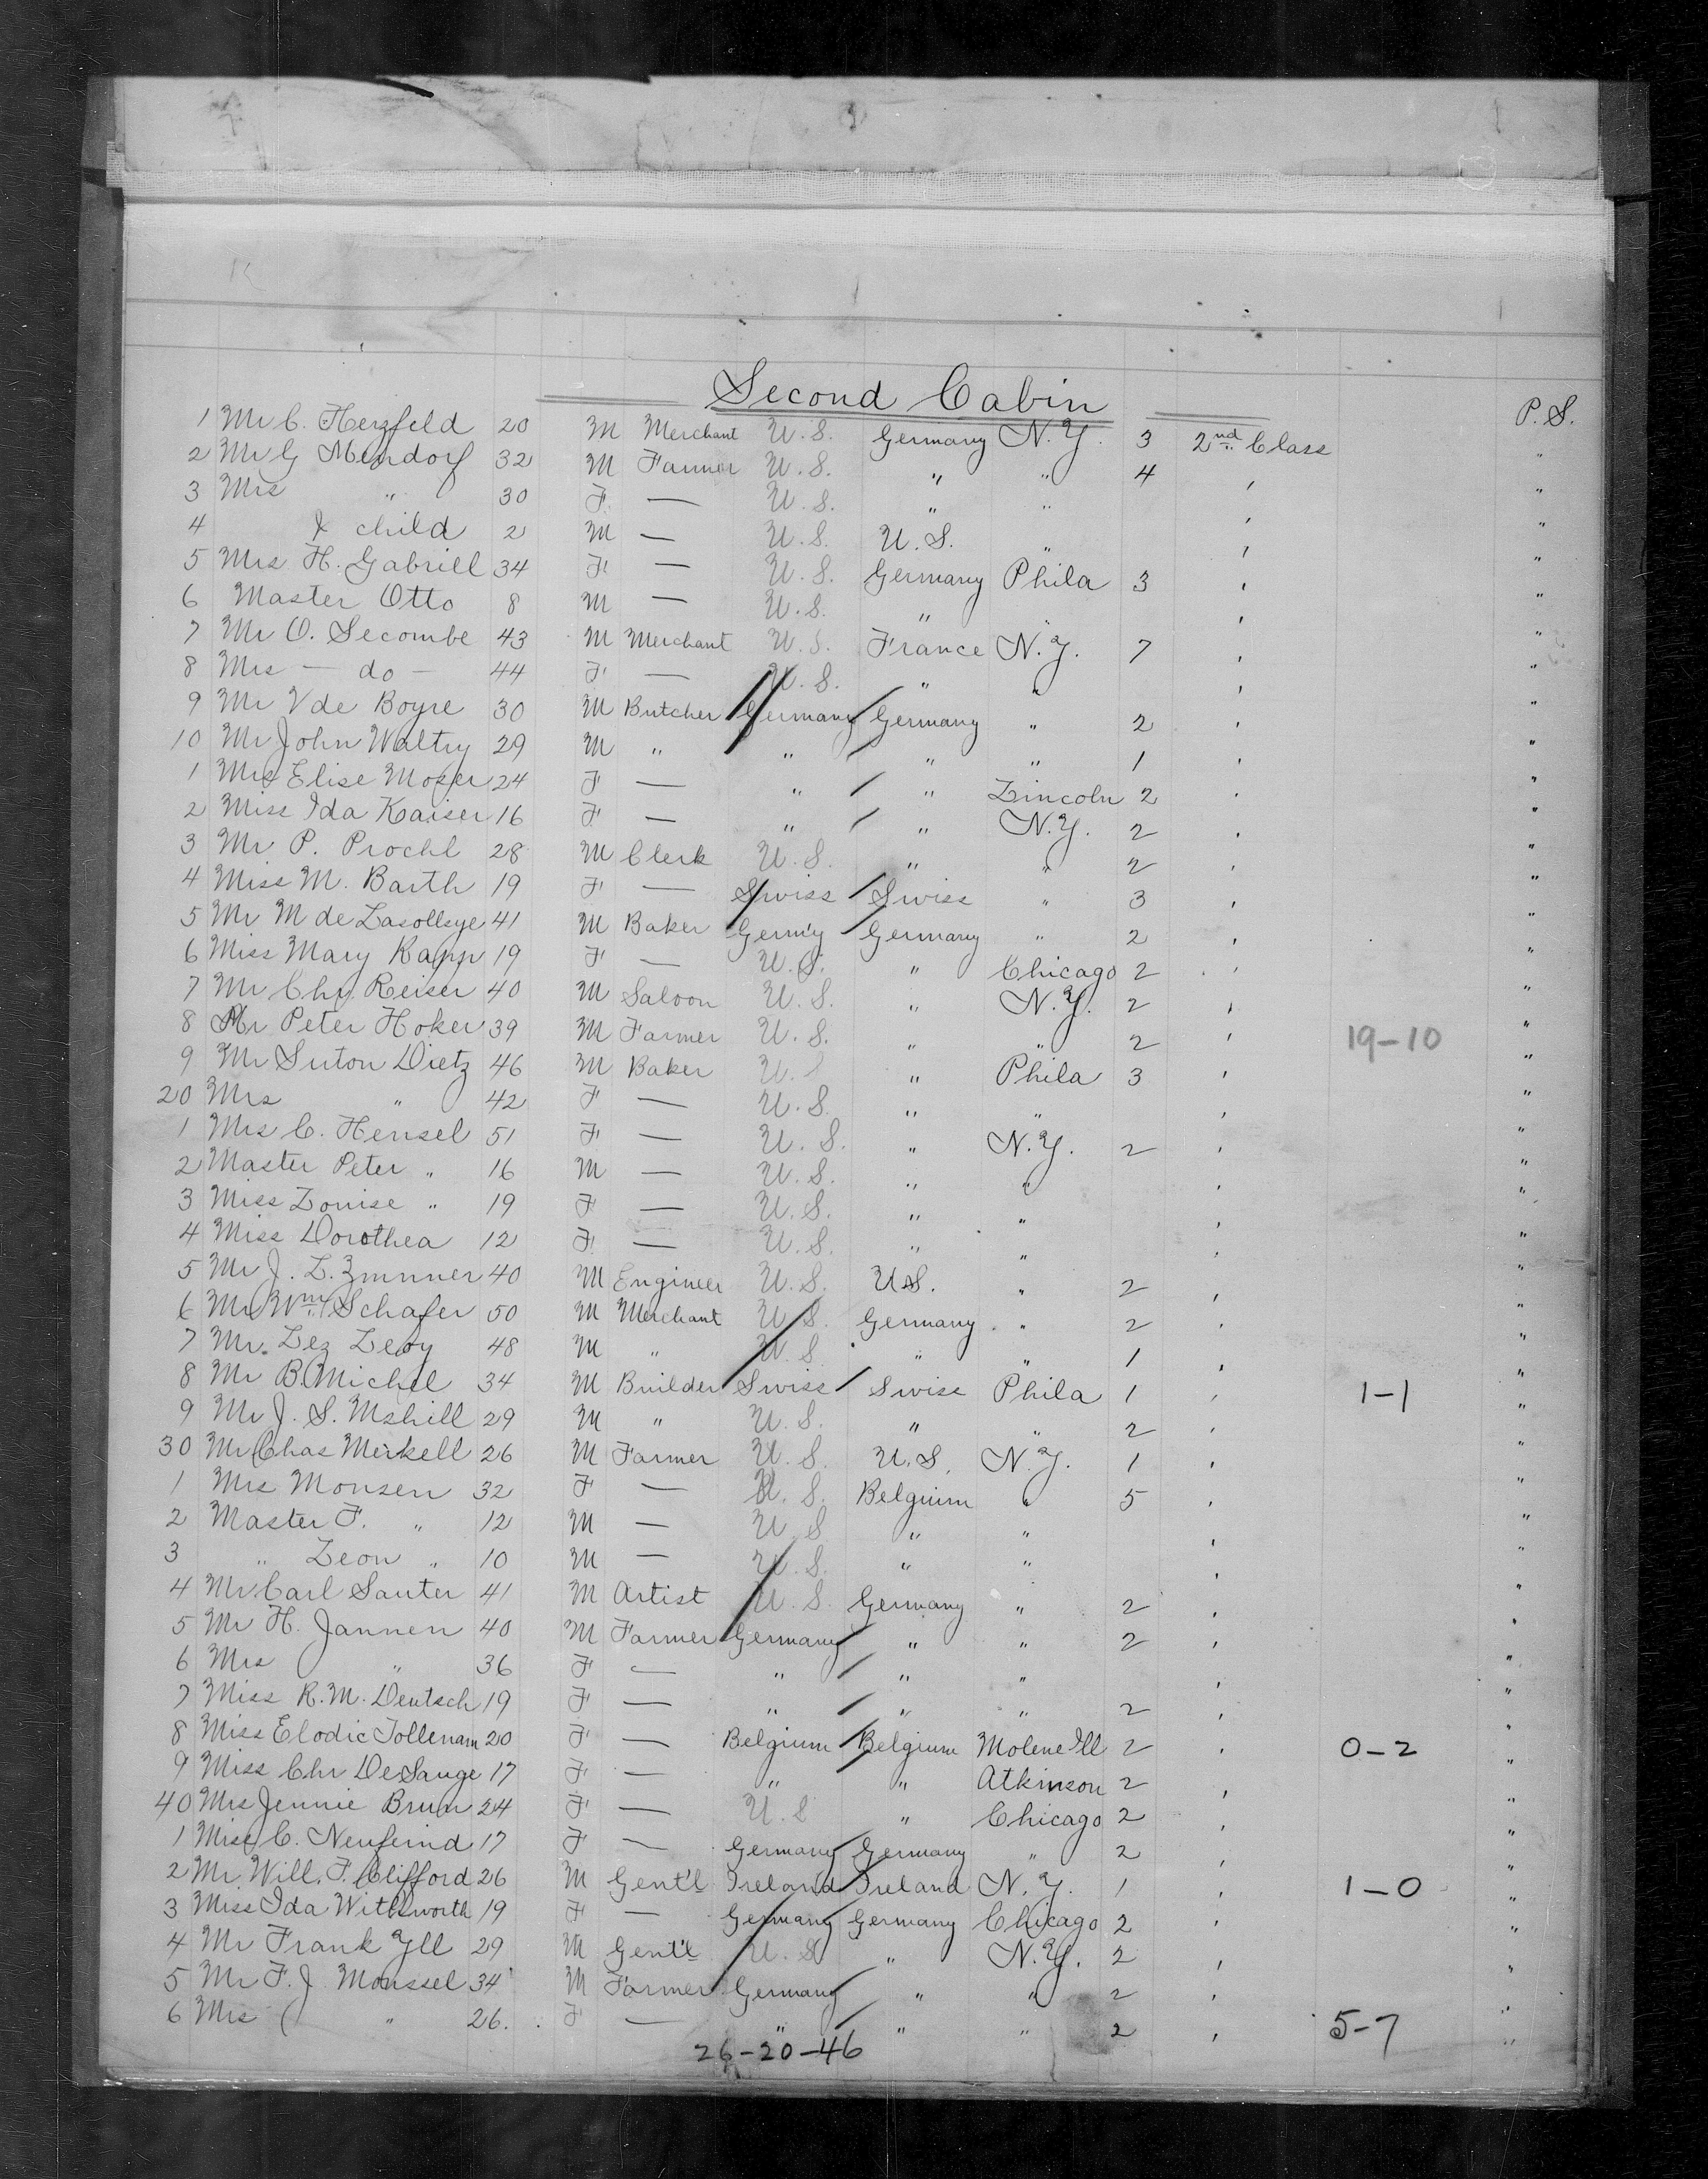 Second Cabin
P. S.
1 Mr C. Herzfeld 20 M Merchant U.S. Germany N.Y. 3 2nd Class
2 Mr G Mendorf 32 M Farmer U.S. " " 4 ' "
3 Mrs " 30 F. — U.S. " " ' "
4 & child 2 M — U.S. U.S. " ' "
5 Mrs H. Gabriell 34 F — U.S. Germany Phila 3 ' "
6 Master Otto 8 M — U.S. " " ' "
7 Mr O. Secombe 43 M Merchant U.S. France N.Y. 7 ' "
8 Mrs — do — 44 F — U.S. " " ' "
9 Mr V de Boyre 30 M Butcher Germany Germany " 2 ' "
10 Mr John Waltry 29 M " " " " 1 ' "
1 Mrs Elise Moser 24 F — " " Lincoln 2 ' "
2 Miss Ida Kaiser 16 F. — " " N.Y. 2 ' "
3 Mr P. Prochl 28 M Clerk U.S. " " 2 ' "
4 Miss M. Barth 19 F — Swiss Swiss " 3 ' "
5 Mr M de 41 M Baker Germ'y Germany " 2 ' "
6 Miss Mary Kapp 19 F — U.S. " Chicago 2 ' "
7 Mr Chr. Reiser 40 M Saloon U.S. " N.Y. 2 ' "
8 Mr Peter Hoker 39 M Farmer U.S. " " 2 ' 19-10 "
9 Mr Suton Dietz 46 M Baker U.S " Phila 3 ' "
20 Mrs " 42 F — U.S. " " ' "
1 Mrs C. Hensel 51 F — U.S. " N.Y. 2 ' "
2 Master Peter " 16 M — U.S. " " ' "
3 Miss Louise " 19 F — U.S. " " ' "
4 Miss Dorothea 12 F. — U.S. " " ' "
5 Mr J. L. Zmnner 40 M Engineer U.S. U.S. " 2 ' "
6 Mr Wm. Schafer 50 M Merchant U.S. Germany " 2 ' "
7 Mr. Lez Levy 48 M " U.S " " 1 ' "
8 Mr B. Michel 34 M Builder Swiss Swiss Phila 1 ' 1-1 "
9 Mr J. S. Mshill 29 M " U.S. " " 2 ' "
30 Mr Chas Merkell 26 M Farmer U.S. U.S. N.Y. 1 ' "
1 Mrs Monsen 32 F — U.S. Belgium " 5 ' "
2 Master F. " 12 M — U S " " ' "
3 " Leon " 10 M — U.S. " " ' "
4 Mr Carl Sauter 41 M Artist U.S. Germany " 2 ' "
5 Mr H. Jannen 40 M Farmer Germany " " 2 ' "
6 Mrs " 36 F — " " " ' "
7 Miss R. M. Deutsch 19 F — " " " 2 ' "
8 Miss Elodie Tollenam 20 F — Belgium Belgium Molene Ill 2 ' 0-2 "
9 Miss Chr DeSange 17 F — " " Atkinson 2 ' "
40 Mrs Jennie Bruun 24 F — U.S " Chicago 2 ' "
1 Miss C. Neufeind 17 F — Germany Germany " 2 ' "
2 Mr. Will. F. Clifford 26 M Gent'l Ireland Ireland N.Y. 1 ' 1-0 "
3 Miss Ida Withsworth 19 F — Germany Germany Chicago 2 ' "
4 Mr Frank Yll 29 M Gent'l U.S " N.Y. 2 ' "
5 Mr F. J. Moussel 34 M Farmer Germany " " 2 ' "
6 Mrs " 26. F — " " " 2 ' 5-7 "
26-20-46